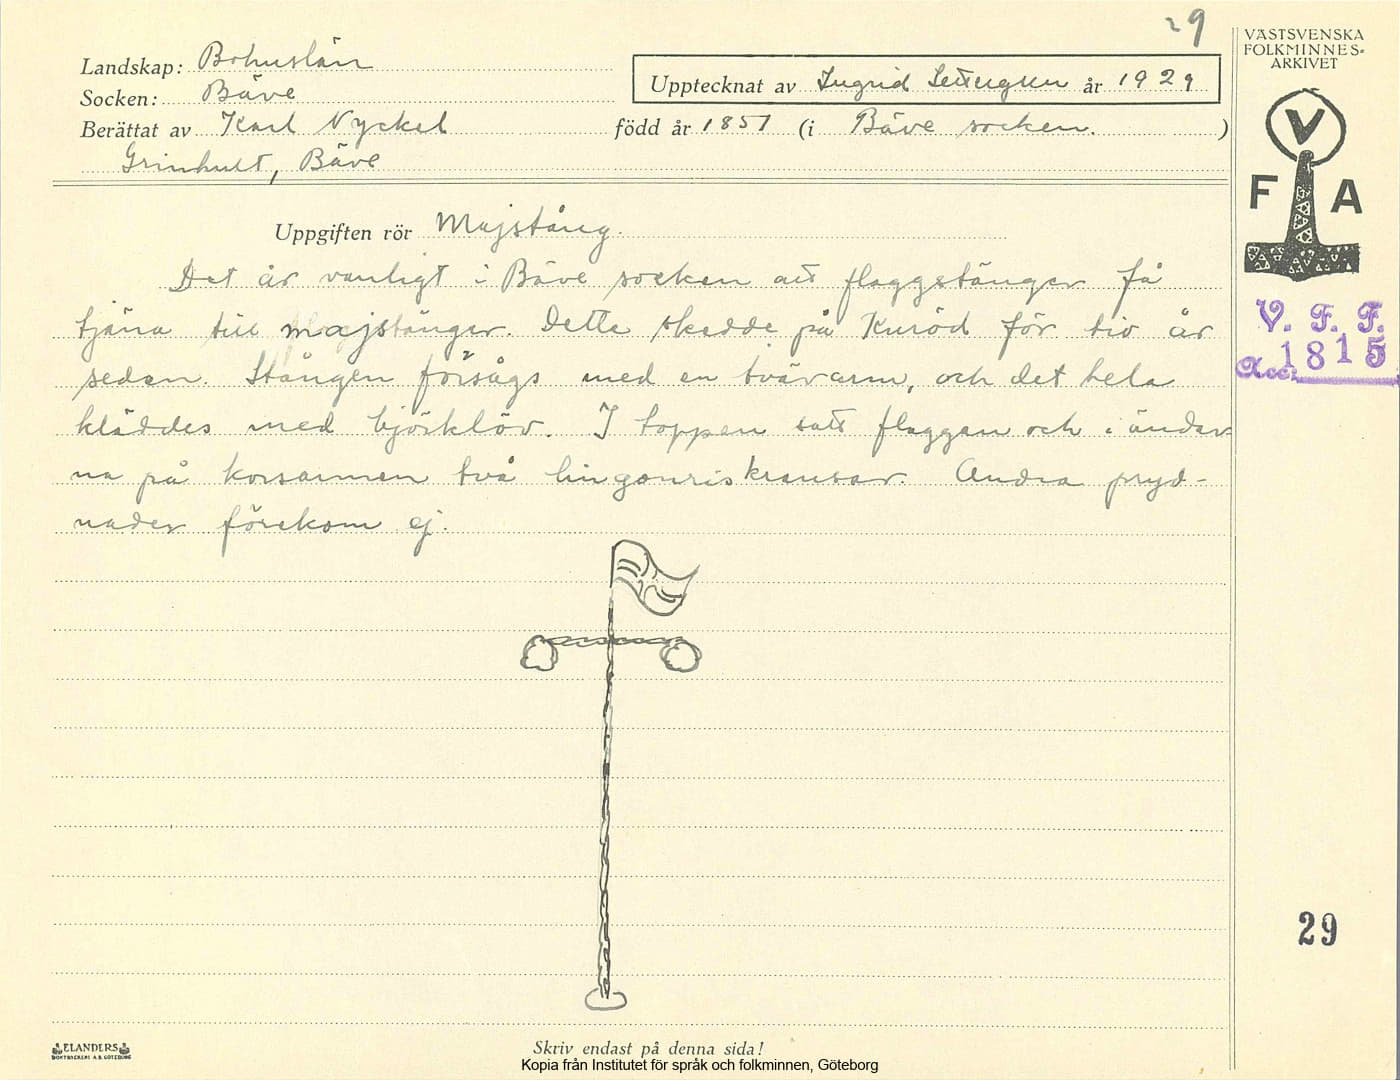 29
Landskap: Bohuslän
Socken: Bäve
Berättat av Karl Nyckel
Grinhult, Bäve
Upptecknat av Ingrid år 1929
född år 1851 (i Bäve socken.)
VÄSTSVENSKA
FOLKMINNES-
ARKIVET
V
F A
V. F. F.
Acc. 1815
Uppgiften rör Majstång.
Det är vanligt i Bäve socken att flaggstänger få
tjäna till majstänger. Detta skedde på Kuröd för tio år
sedan. Stången försågs med en tvärarm, och det hela
kläddes med björklöv. I toppen satt flaggan och i ändar-
na på korsarmen två lingonriskransar. Andra pryd-
nader förekom ej.
29
ELANDERS
BOKTRYCKERI A.B. GÖTEBORG
Skriv endast på denna sida!
Kopia från Institutet för språk och folkminnen, Göteborg